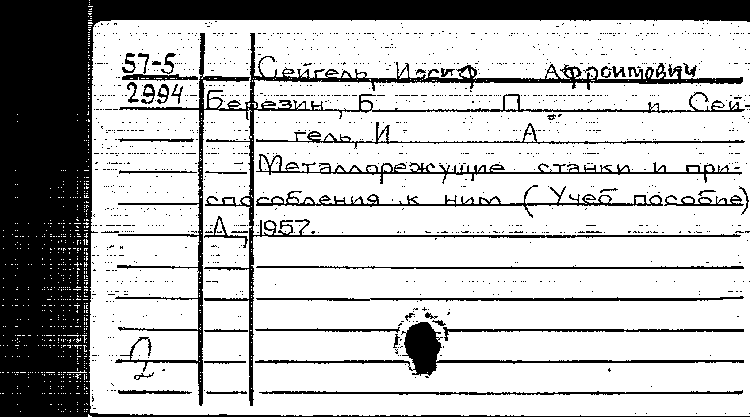 57-5 Сейгель, Иосиф Афроимович
2994 Березин, Б П и Сей-
гель, И А
Металлорежущие станки и при-
способления к ним (Учеб. пособие)
Л., 1957.
2